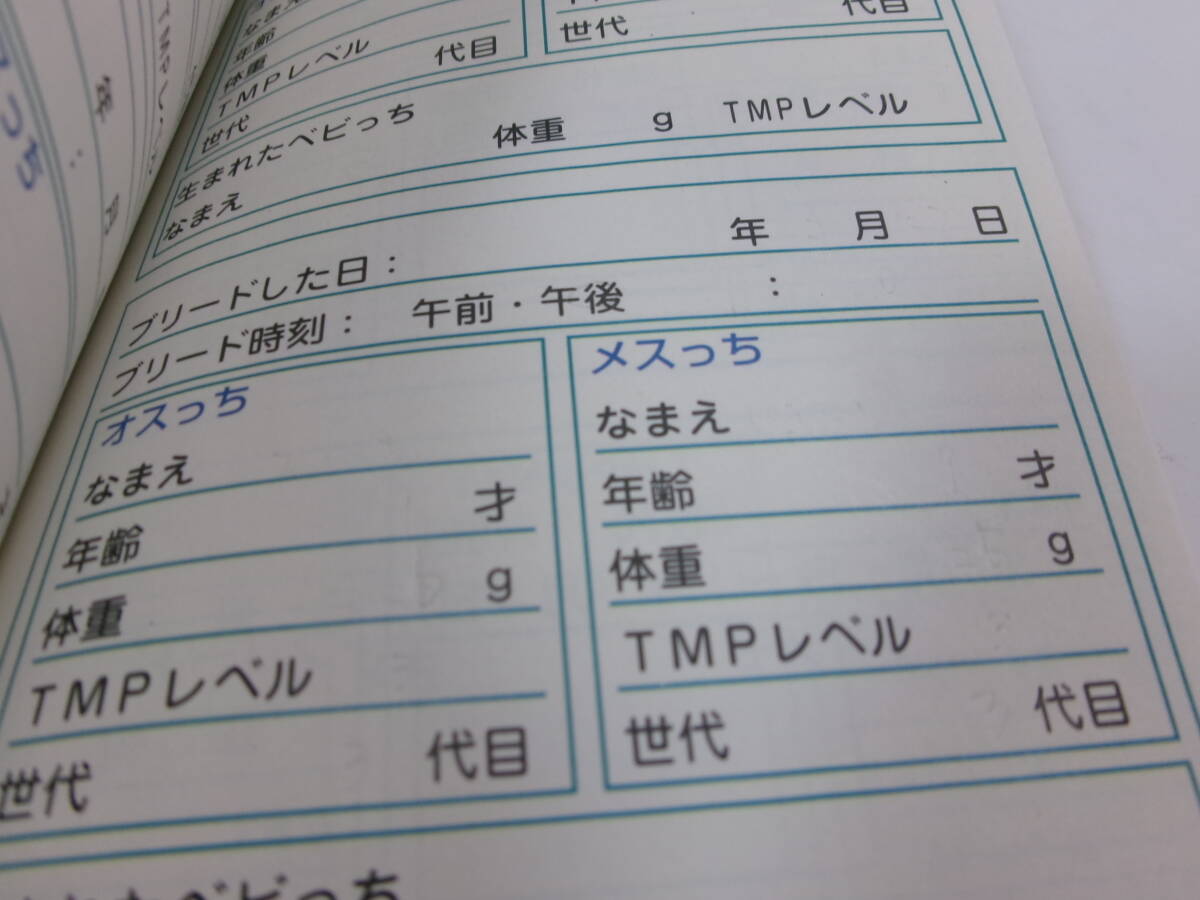 なまえ
年齢
体重
TMPレベル
世代 代目
世代 代目
生まれたベビっち
なまえ 体重 g TMPレベル
ブリードした日： 年 月 日
ブリード時刻： 午前・午後 ：
オスっち
なまえ
年齢 才
体重 g
TMPレベル
世代 代目
メスっち
なまえ
年齢 才
体重 g
TMPレベル
世代 代目
ベビっち